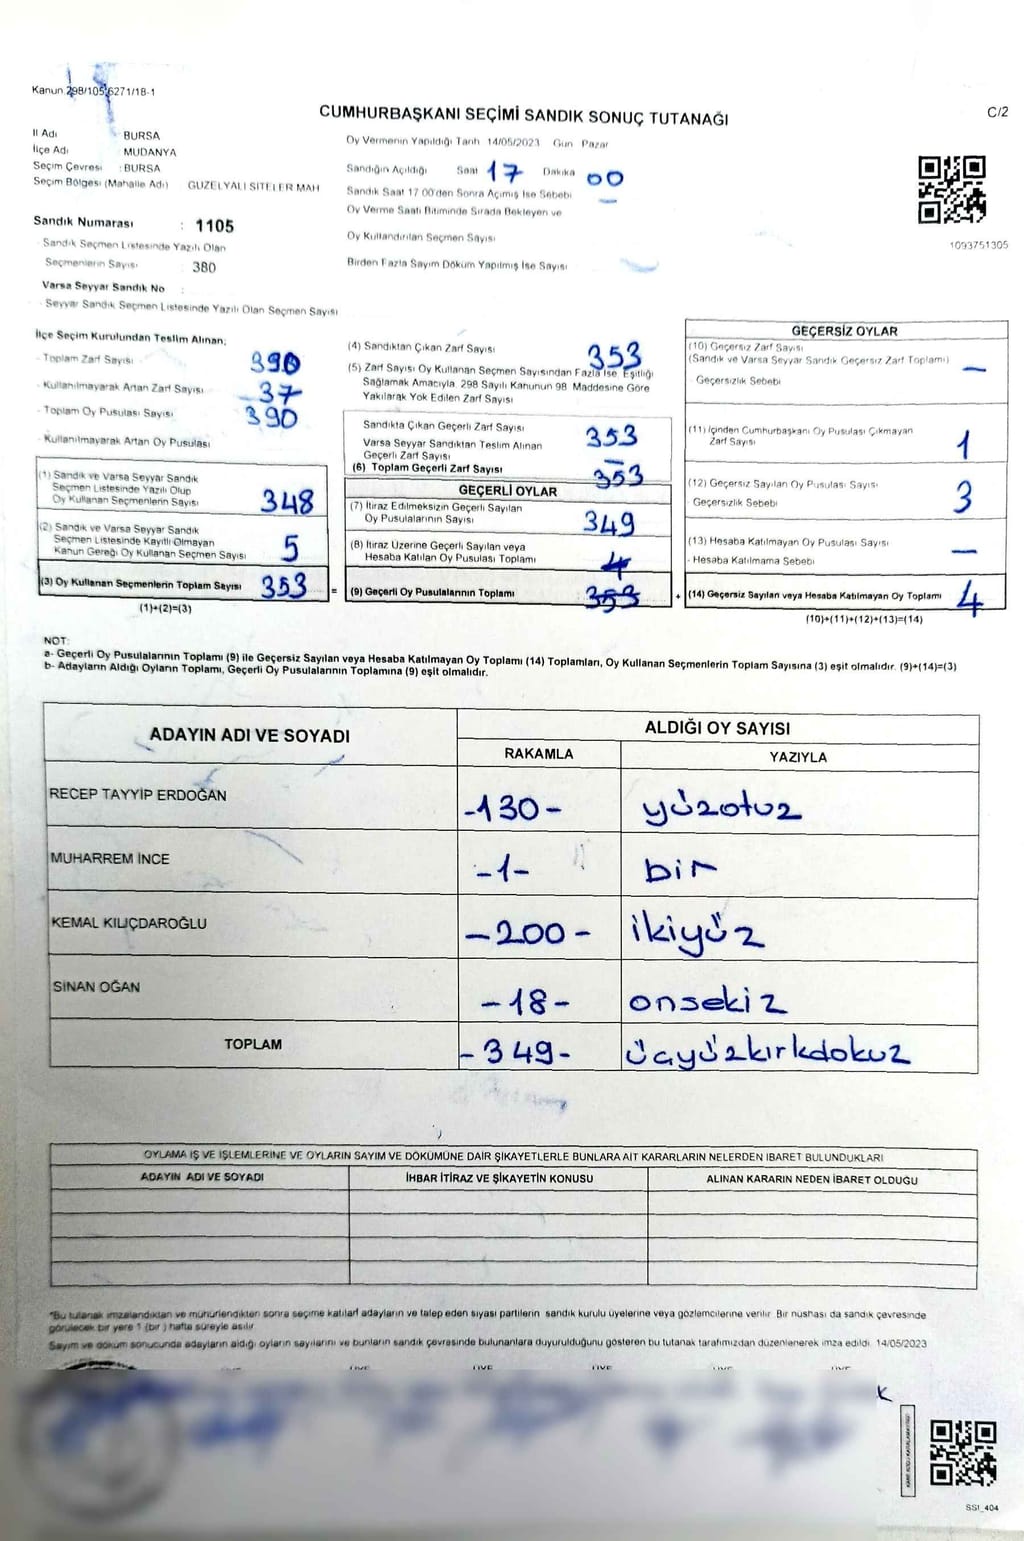 Kanun 298/105,6271/18-1
CUMHURBAŞKANI SEÇİMİ SANDIK SONUÇ TUTANAĞI
C/2
İl Adı : BURSA
İlçe Adı : MUDANYA
Seçim Çevresi : BURSA
Seçim Bölgesi (Mahalle Adı) GÜZELYALI SİTELER MAH
Oy Vermenin Yapıldığı Tarih 14/05/2023 Gün Pazar
Sandığın Açıldığı Saat 17 Dakika 00
Sandık Saat 17 00'den Sonra Açmış İse Sebebi
Oy Verme Saati Bitiminde Sırada Bekleyen ve
Oy Kullandırılan Seçmen Sayısı
Birden Fazla Sayım Döküm Yapılmış İse Sayısı
1093751305
Sandık Numarası : 1105
- Sandık Seçmen Listesinde Yazılı Olan
Seçmenlerin Sayısı : 380
Varsa Seyyar Sandık No :
- Seyyar Sandık Seçmen Listesinde Yazılı Olan Seçmen Sayısı
İlçe Seçim Kurulundan Teslim Alınan;
- Toplam Zarf Sayısı 390
- Kullanılmayarak Artan Zarf Sayısı 37
- Toplam Oy Pusulası Sayısı 390
- Kullanılmayarak Artan Oy Pusulası
(1) Sandık ve Varsa Seyyar Sandık
Seçmen Listesinde Yazılı Olup
Oy Kullanan Seçmenlerin Sayısı 348
(2) Sandık ve Varsa Seyyar Sandık
Seçmen Listesinde Kayıtlı Olmayan
Kanun Gereği Oy Kullanan Seçmen Sayısı 5
(3) Oy Kullanan Seçmenlerin Toplam Sayısı 353
(1)+(2)=(3)
=
(4) Sandıktan Çıkan Zarf Sayısı 353
(5) Zarf Sayısı Oy Kullanan Seçmen Sayısından Fazla İse Eşitliği
Sağlamak Amacıyla 298 Sayılı Kanunun 98 Maddesine Göre
Yakılarak Yok Edilen Zarf Sayısı
Sandıkta Çıkan Geçerli Zarf Sayısı 353
Varsa Seyyar Sandıktan Teslim Alınan
Geçerli Zarf Sayısı —
(6) Toplam Geçerli Zarf Sayısı 353
GEÇERLİ OYLAR
(7) İtiraz Edilmeksizin Geçerli Sayılan
Oy Pusulalarının Sayısı 349
(8) İtiraz Üzerine Geçerli Sayılan veya
Hesaba Katılan Oy Pusulası Toplamı 4
(9) Geçerli Oy Pusulalarının Toplamı 353
+
GEÇERSİZ OYLAR
(10) Geçersiz Zarf Sayısı
(Sandık ve Varsa Seyyar Sandık Geçersiz Zarf Toplamı) —
- Geçersizlik Sebebi
(11) İçinden Cumhurbaşkanı Oy Pusulası Çıkmayan
Zarf Sayısı 1
(12) Geçersiz Sayılan Oy Pusulası Sayısı 3
- Geçersizlik Sebebi
(13) Hesaba Katılmayan Oy Pusulası Sayısı —
- Hesaba Katılmama Sebebi
(14) Geçersiz Sayılan veya Hesaba Katılmayan Oy Toplamı 4
(10)+(11)+(12)+(13)=(14)
NOT:
a- Geçerli Oy Pusulalarının Toplamı (9) ile Geçersiz Sayılan veya Hesaba Katılmayan Oy Toplamı (14) Toplamları, Oy Kullanan Seçmenlerin Toplam Sayısına (3) eşit olmalıdır. (9)+(14)=(3)
b- Adayların Aldığı Oyların Toplamı, Geçerli Oy Pusulalarının Toplamına (9) eşit olmalıdır.
ADAYIN ADI VE SOYADI
ALDIĞI OY SAYISI
RAKAMLA YAZIYLA
RECEP TAYYİP ERDOĞAN -130- yüzotuz
MUHARREM İNCE -1- bir
KEMAL KILIÇDAROĞLU -200- ikiyüz
SİNAN OĞAN -18- onsekiz
TOPLAM -349- üçyüzkırkdokuz
OYLAMA İŞ VE İŞLEMLERİNE VE OYLARIN SAYIM VE DÖKÜMÜNE DAİR ŞİKAYETLERLE BUNLARA AİT KARARLARIN NELERDEN İBARET BULUNDUKLARI
ADAYIN ADI VE SOYADI İHBAR İTİRAZ VE ŞİKAYETİN KONUSU ALINAN KARARIN NEDEN İBARET OLDUĞU
*Bu tutanak imzalandıktan ve mühürlendikten sonra seçime katılan adayların ve talep eden siyasi partilerin sandık kurulu üyelerine veya gözlemcilerine verilir. Bir nüshası da sandık çevresinde
görülecek bir yere 1 (bir) hafta süreyle asılır.
Sayım ve döküm sonucunda adayların aldığı oyların sayılarını ve bunların sandık çevresinde bulunanlara duyurulduğunu gösteren bu tutanak tarafımızdan düzenlenerek imza edildi. 14/05/2023
SSI_404